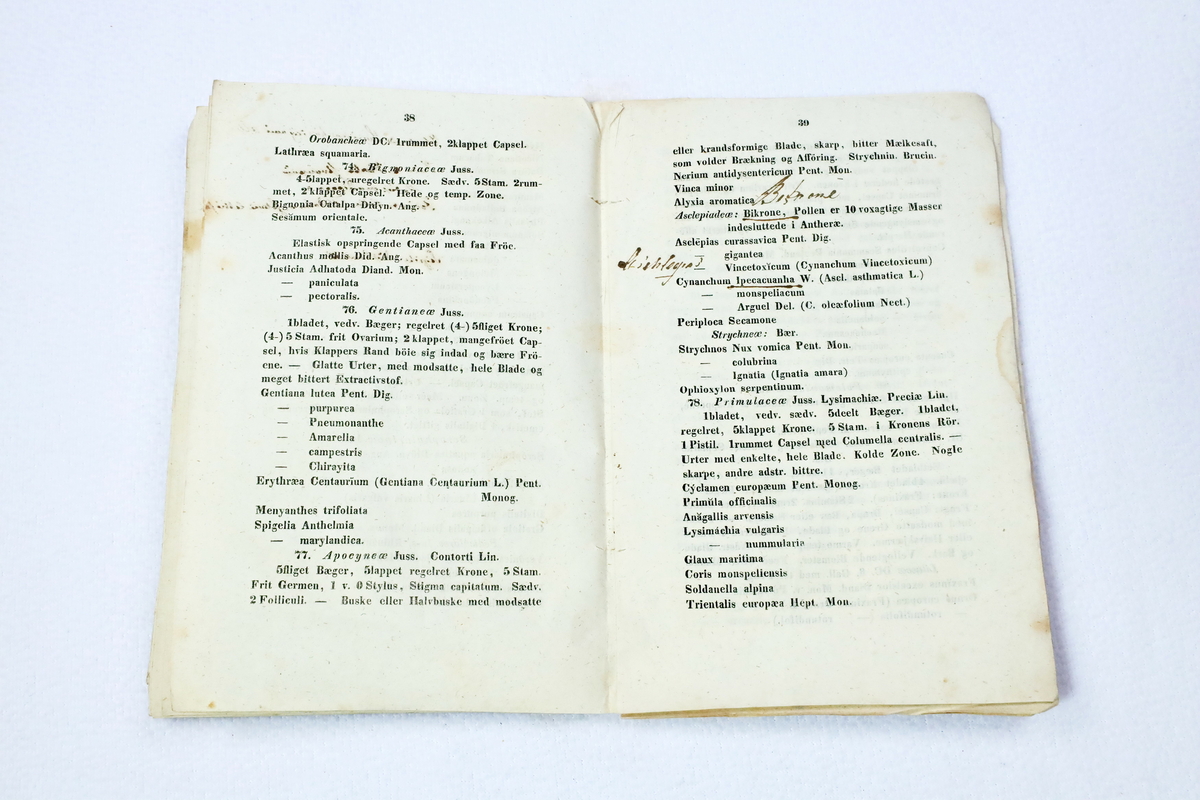 38
Orobancheæ DC. 1rummet, 2klappet Capsel.
Lathræa squamaria.
74. Bignoniaceæ Juss.
4-5lappet, uregelret Krone. Sædv. 5 Stam. 2rum-
met, 2 klappet Capsel. Hede og temp. Zone.
Bignonia Catalpa Didyn. Ang.
Sesămum orientale.
75. Acanthaceæ Juss.
Elastisk opspringende Capsel med faa Fröe.
Acanthus mollis Did. Ang.
Justicia Adhatoda Diand. Mon.
— paniculata
— pectoralis.
76. Gentianeæ Juss.
1bladet, vedv. Bæger; regelret (4-) 5fliget Krone;
(4-) 5 Stam. frit Ovarium; 2 klappet, mangefröet Cap-
sel, hvis Klappers Rand böie sig indad og bære Frö-
ene. — Glatte Urter, med modsatte, hele Blade og
meget bittert Extractivstof.
Gentiana lutea Pent. Dig.
— purpurea
— Pneumonanthe
— Amarella
— campestris
— Chirayita
Erythræa Centaurium (Gentiana Centaurium L.) Pent.
Monog.
Menyanthes trifoliata
Spigelia Anthelmia
— marylandica.
77. Apocyneæ Juss. Contorti Lin.
5fliget Bæger, 5lappet regelret Krone, 5 Stam.
Frit Germen, 1 v. 0 Stylus, Stigma capitatum. Sædv.
2 Folliculi. — Buske eller Halvbuske med modsatte
39
eller krandsformige Blade, skarp, bitter Mælkesaft,
som volder Brækning og Afföring. Strychnin. Brucin.
Nerium antidysentericum Pent. Mon.
Vinca minor
Alyxia aromatica Bikrone
Asclepiadeæ: Bikrone, Pollen er 10 voxagtige Masser
indesluttede i Antheræ.
Asclĕpias curassavica Pent. Dig.
— gigantea
— Vincetoxĭcum (Cynanchum Vincetoxicum)
Cynanchum Ipecacuanha W. (Ascl. asthmatica L.)
— monspeliacum
— Arguel Del. (C. oleæfolium Nect.)
Periploca Secamone
Strychneæ: Bær.
Strychnos Nux vomica Pent. Mon.
— colubrina
— Ignatia (Ignatia amara)
Ophioxylon serpentinum.
78. Primulaceæ Juss. Lysimachiæ. Preciæ Lin.
1bladet, vedv. sædv. 5deelt Bæger. 1bladet,
regelret, 5klappet Krone. 5 Stam. i Kronens Rör.
1 Pistil. 1rummet Capsel med Columella centralis. —
Urter med enkelte, hele Blade. Kolde Zone. Nogle
skarpe, andre adstr. bittre.
Cýclamen europæum Pent. Monog.
Primŭla officinalis
Anăgallis arvensis
Lysimáchia vulgaris
— nummularia
Glaux maritima
Coris monspeliensis
Soldanella alpina
Trientalis europæa Hept. Mon.